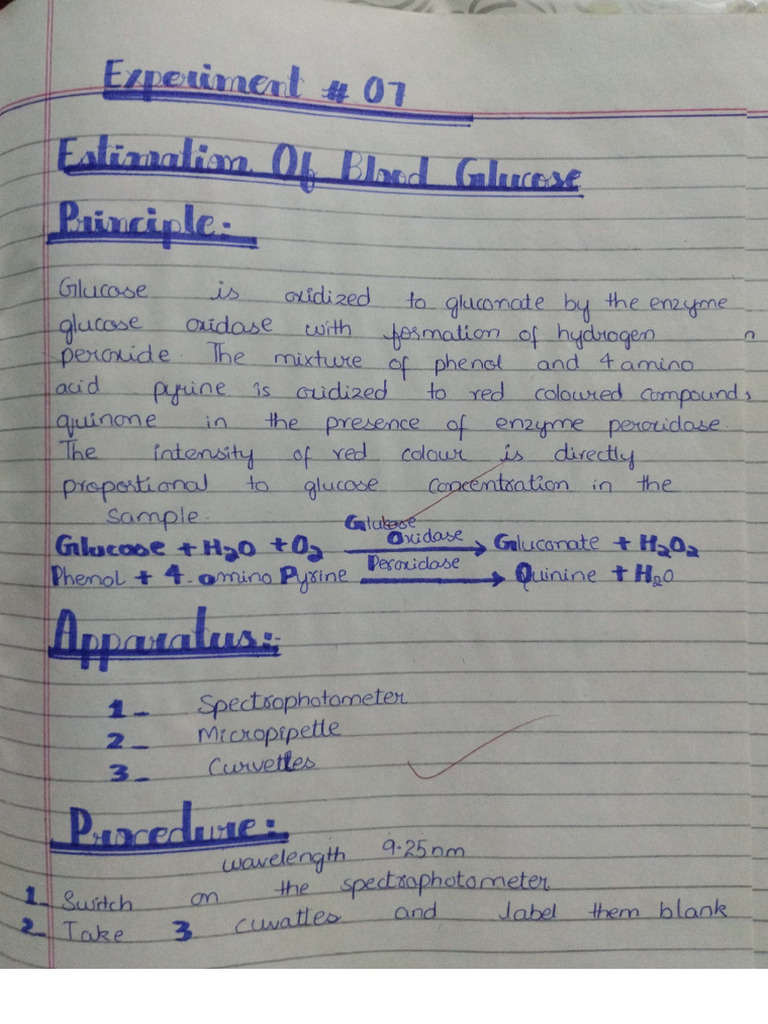 Experiment # 07
Estimation Of Blood Glucose
Principle:-
Glucose is oxidized to gluconate by the enzyme
glucose oxidase with formation of hydrogen n
peroxide. The mixture of phenol and 4 amino
acid pyrine is oxidized to red coloured compound,
quinone in the presence of enzyme peroxidase.
The intensity of red colour is directly
proportional to glucose concentration in the
sample.
Glucose + H2O + O2 Glulose Oxidase Gluconate + H2O2
Phenol + 4-amino Pyrine Peroxidase Quinine + H2O
Apparatus:-
1- Spectrophotometer
2- Micropipette
3- Curvettes
Procedure:-
wavelength 9.25nm
1- Switch on the spectrophotometer
2- Take 3 cuvattes and label them blank